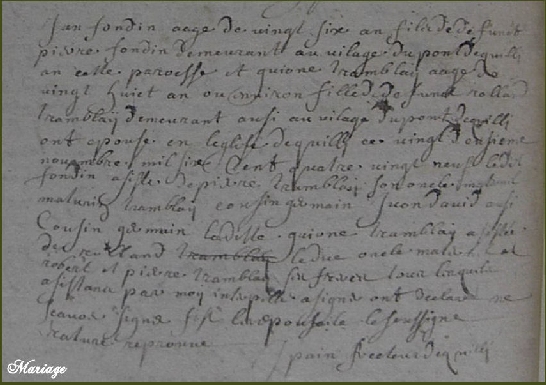 Jan fondin aage de vingt six an fils de defunct
pierre fondin demeurant au vilage du pont dequilli
an cette paroesse et quione tramblay aage de
vingt huict an ou nviron fille de de func rolland
tramblaij demeurant ausi au village du pont dequilli
ont epouse en leglise dequilli ce vingt
novembre mil six Cent quatre vingt neuf ledit
fondin asiste de pierre tramblay son oncle
maturin tramblay cousin germain yvon david ausi
Cousin germain laditte quione tramblay asistee
de rolland tramblay oncle
robert et pierre tramblay ses freres tous lesquels
asistans par moy intepelle a signe ont declare ne
scavoir signe fors le soussigne
rature repronue
Spain recteur dequilli
Mariage